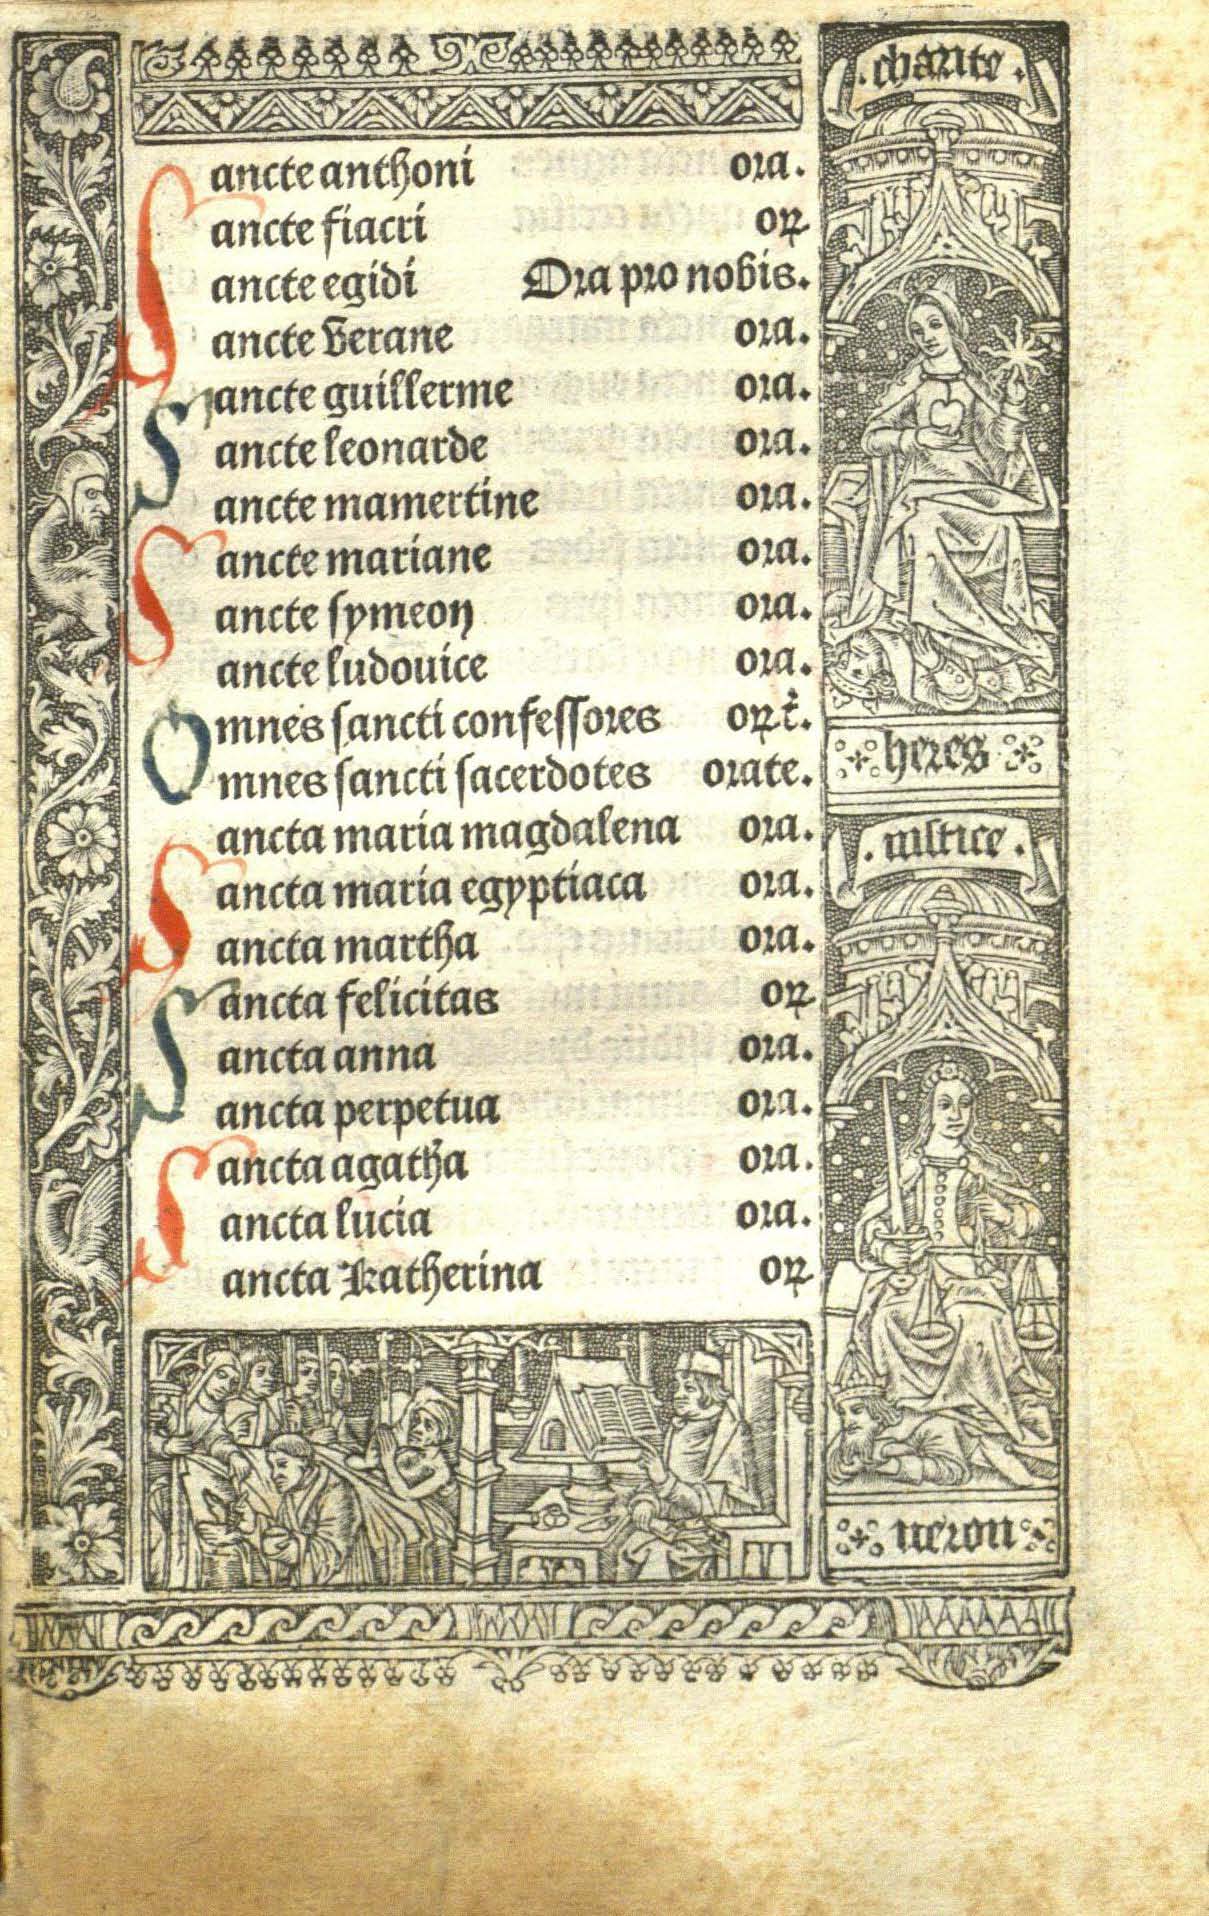 Sancte anthoni ora.
Sancte fiacri oꝝ
Sancte egidi Ora pro nobis.
Sancte Verane ora.
Sancte guillerme ora.
Sancte leonarde ora.
Sancte mamertine ora.
Sancte mariane ora.
Sancte symeon ora.
Sancte ludouice ora.
Omnes sancti confessores oꝝt̄.
Omnes sancti sacerdotes orate.
Sancta maria magdalena ora.
Sancta maria egyptiaca ora.
Sancta martha ora.
Sancta felicitas oꝝ
Sancta anna ora.
Sancta perpetua ora.
Sancta agatha ora.
Sancta lucia ora.
Sancta Katherina oꝝ
.charite.
heres
.iustice.
neron